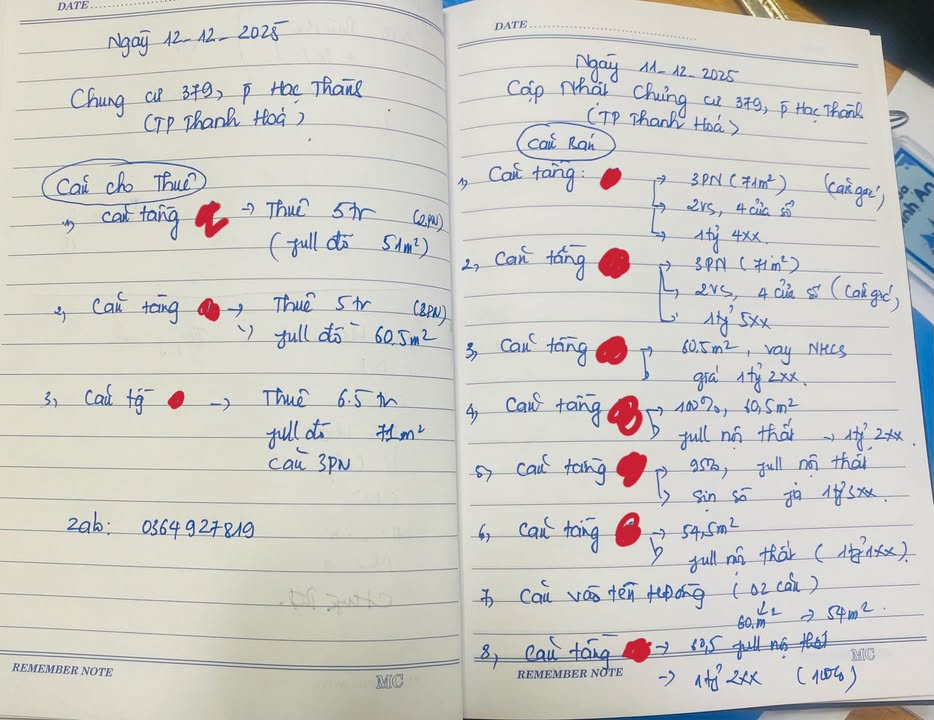 DATE
Ngày 12-12-2025
Chung cư 379, P Hạc Thành
(TP Thanh Hoá)
Căn cho Thuê
1, căn tầng → Thuê 5 tr (2PN)
(full đồ 51m²)
2, Căn tầng → Thuê 5 tr (2PN)
full đồ 60.5m²
3, Căn tg → Thuê 6.5 tr
full đồ 71m²
Căn 3PN
Zalo: 0364927819
REMEMBER NOTE
MC
DATE
Ngày 11-12-2025
Cập Nhật Chung cư 379, P Hạc Thành
(TP Thanh Hoá)
Căn Bán
1, Căn tầng: → 3PN (71m²) (căn góc)
→ 2vs, 4 cửa sổ
→ 1tỷ 4xx.
2, Căn tầng → 3PN (71m²)
→ 2vs, 4 cửa sổ (căn góc)
1tỷ 5xx
3, Căn tầng 60.5m², vay NHCS
giá 1tỷ 2xx.
4, Căn tầng → 100%, 60,5m²
full nội thất → 1tỷ 2xx.
5, Căn tầng → 95%, full nội thất
sịn sò giá 1tỷ 3xx.
6, Căn tầng → 54,5m²
full nội thất (1tỷ 1xx).
7, Căn vào tên (02 căn)
60.m² → 54m².
8, Căn tầng → 60,5 full nội thất
→ 1tỷ 2xx (100%)
REMEMBER NOTE
MC